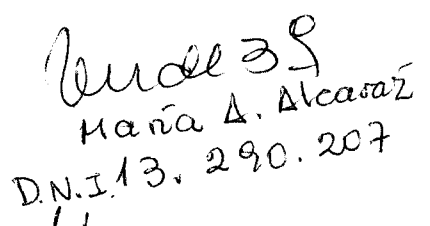 María A. Alcaraz
D.N.I. 13.290.207